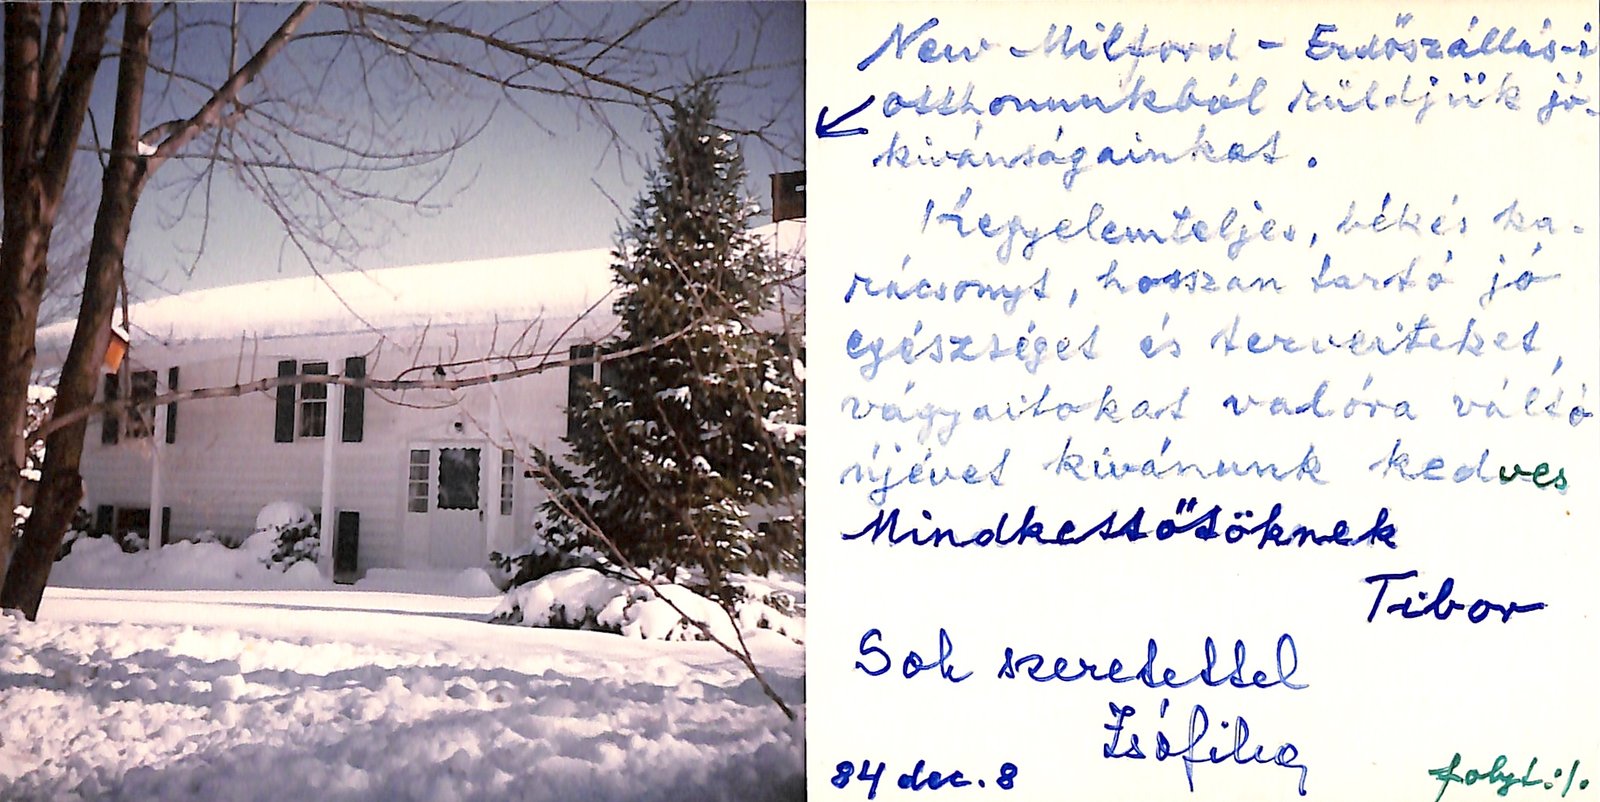 New Milford - Erdőszállás-i
otthonunkból küldjük jó-
kivánságainkat.
Kegyelemteljes, békés ka-
rácsonyt, hosszan tartó jó
egészséget és terveiteket,
vágyaitokat valóra váltó
újévet kívánunk kedves
Mindkettőtöknek
Tibor
Sok szeretettel
Zsófika
84 dec. 8
folyt. ·/.